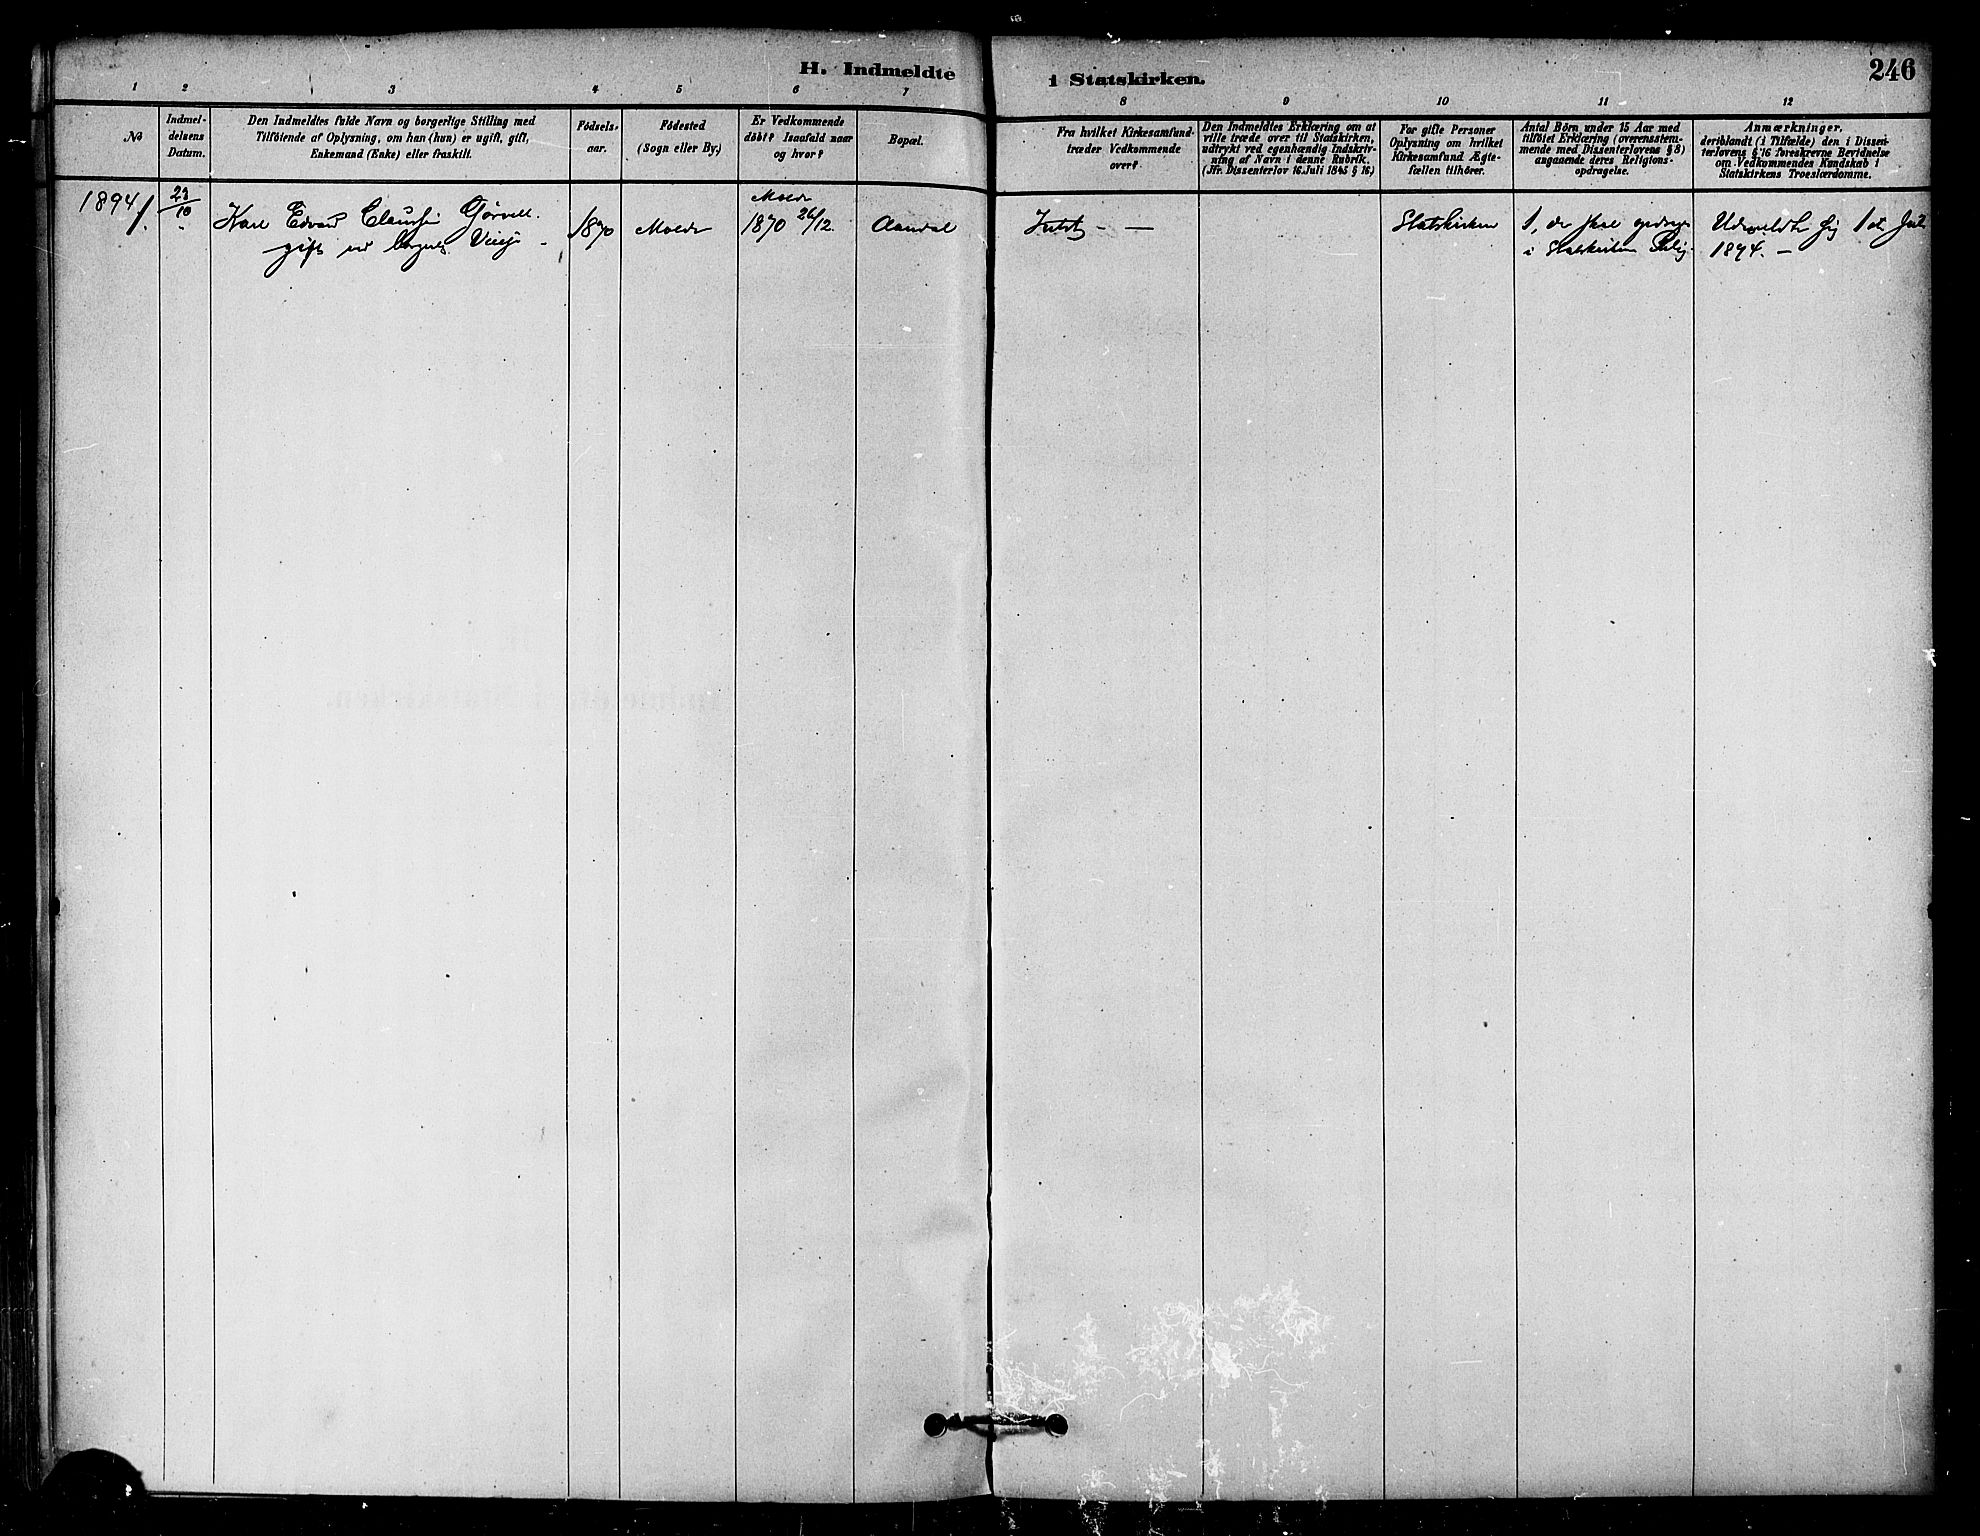 H. Indmeldte i Statskirken.
246
1 2 3 4 5 6 7 8 9 10 11 12
№
Indmel-
delsens
Datum.
Den Indmeldtes fulde Navn og borgerlige Stilling med
Tilföiende af Oplysning, om han (hun) er ugift, gift,
Enkemand (Enke) eller fraskilt.
Födsels-
aar.
Födested
(Sogn eller By.)
Er Vedkommende
döbt? Isaafald naar
og hvor?
Bopæl.
Fra hvilket Kirkesamfund
træder Vedkommende
over?
Den Indmeldtes Erklæring om at
ville træde over til Statskirken,
udtrykt ved egenhændig Indskriv-
ning af Navn i denne Rubrik.
(Jfr. Dissenterlov 16. Juli 1845 § 16)
For gifte Personer
Oplysning om hvilket
Kirkesamfund Ægte-
fællen tilhörer.
Antal Börn under 15 Aar med
tilföiet Erklæring (overensstem-
mende med Dissenterlovens § 8)
angaaende deres Religions-
opdragelse.
Anmærkninger,
deriblandt (i Tilfælde) den i Dissen-
terlovens § 16 foreskrevne Bevidnelse
om Vedkommendes Kundskab i
Statskirkens Troeslærdomme.
1894
1.
23/10
Karl Edvard Claussen Gørvell.
gift
1870
Molde
Molde
1870 26/12.
Aandal
Intet — —
Statskirken
1, der skal opdrages
i Statskirkens Relig.
Udmeldte sig 1ste Juli
1894. —